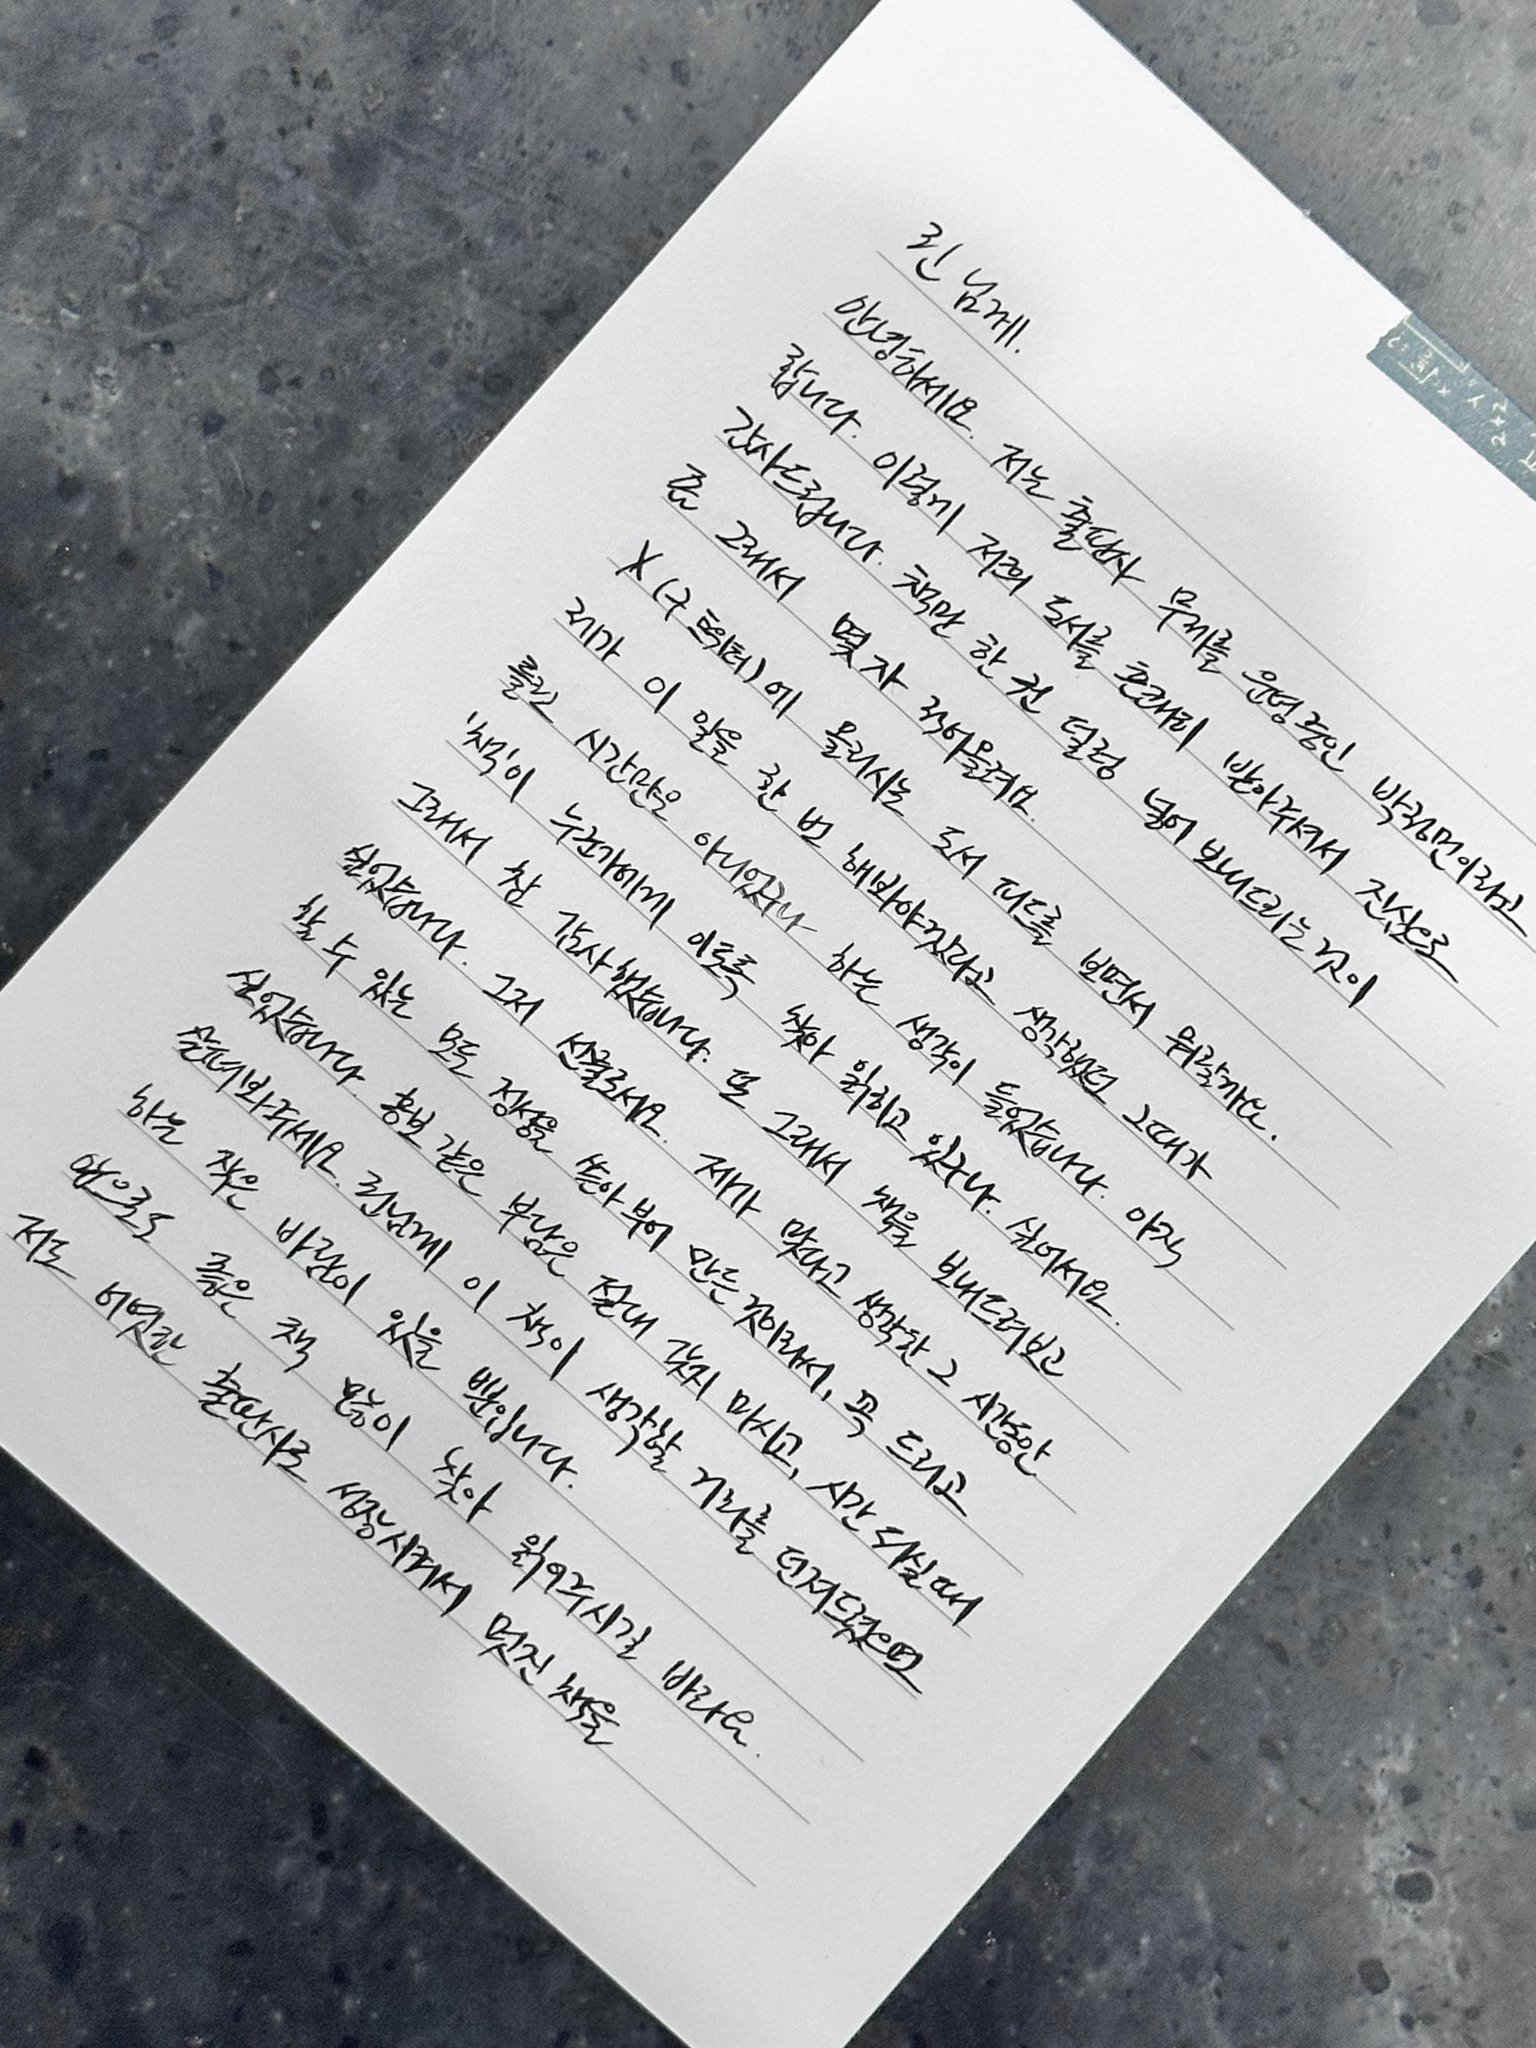 린 님께.
안녕하세요. 저는 출판사 무제를 운영중인 박정민이라고
합니다. 이렇게 저희 도서를 흔쾌히 받아주셔서 진심으로
감사드립니다. 책만 한 권 덜렁 넣어 보내드리는 것이
좀 그래서 몇 자 적어올려요.
X(구 트위터)에 올리시는 도서 피드를 보면서 뭐랄까요.
제가 이 일을 한 번 해봐야겠다고 생각했던 그때가
틀린 시간만은 아니었구나 하는 생각이 들었습니다. 아직
'책'이 누군가에게 이토록 찾아 읽히고 있구나. 싶어서요.
그래서 참 감사했습니다. 또 그래서 책을 보내드려보고
싶었습니다. 그저 선물로써요. 제가 맞다고 생각한 그 시간동안
할 수 있는 모든 정성을 쏟아부어 만든 것이라서, 꼭 드리고
싶었습니다. 홍보 같은 부담은 절대 갖지 마시고, 시간 나실때
슬쩍봐주세요. 린님께 이 책이 생각할 거리를 던져드렸으면
하는 작은 바람이 있을 뿐입니다.
앞으로도 좋은 책 많이 찾아 읽어주시길 바라요.
저도 어엿한 출판사로 성장시켜서 멋진 책을